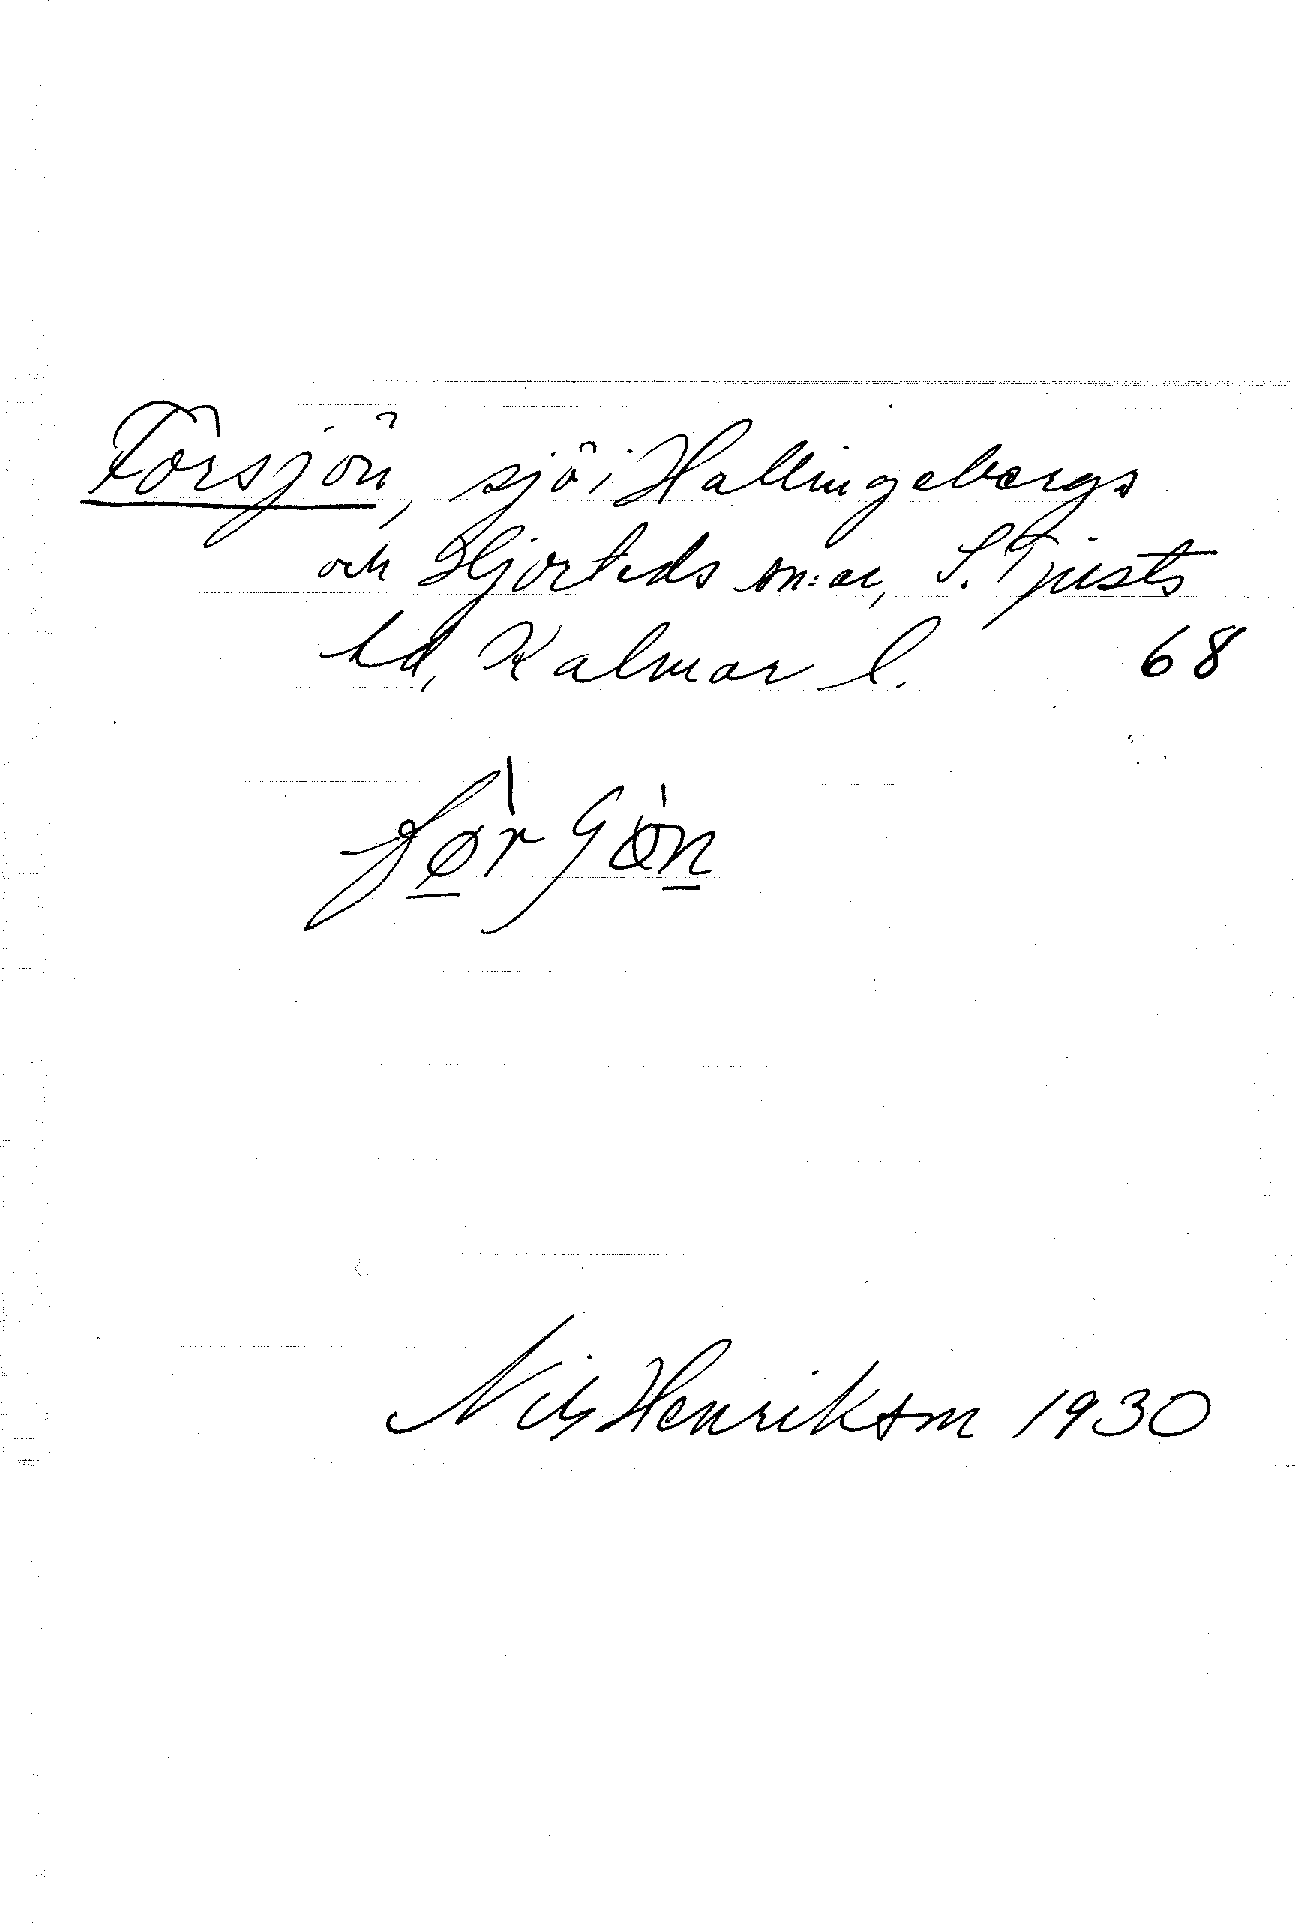 Försjön, sjö i Hallingebergs
och Hjorteds sn:ar, S. Tjusts
hd, Kalmar l. 68
Nils Henrikson 1930